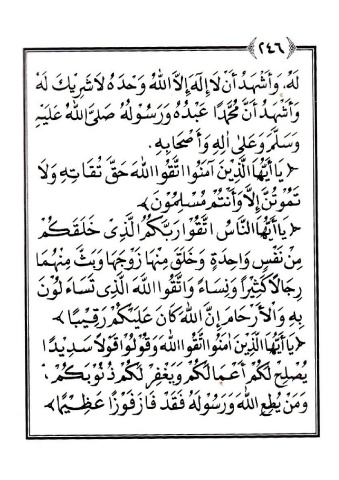 ٢٤٦
لَهُ، وَأَشْهَدُ أَنْ لَا إِلٰهَ إِلَّا اللهُ وَحْدَهُ لَا شَرِيْكَ لَهُ
وَأَشْهَدُ أَنَّ مُحَمَّدًا عَبْدُهُ وَرَسُوْلُهُ صَلَّى اللهُ عَلَيْهِ
وَسَلَّمَ وَعَلٰى اٰلِهِ وَأَصْحَابِهِ.
﴿يَا أَيُّهَا الَّذِيْنَ آمَنُوا اتَّقُوا اللهَ حَقَّ تُقَاتِهِ وَلَا
تَمُوْتُنَّ إِلَّا وَأَنْتُمْ مُسْلِمُوْنَ﴾
﴿يَا أَيُّهَا النَّاسُ اتَّقُوْا رَبَّكُمُ الَّذِيْ خَلَقَكُمْ
مِنْ نَفْسٍ وَاحِدَةٍ وَخَلَقَ مِنْهَا زَوْجَهَا وَبَثَّ مِنْهُمَا
رِجَالًا كَثِيْرًا وَنِسَاءً وَاتَّقُوا اللهَ الَّذِيْ تَسَاءَلُوْنَ
بِهِ وَالْأَرْحَامَ إِنَّ اللهَ كَانَ عَلَيْكُمْ رَقِيْبًا﴾
﴿يَا أَيُّهَا الَّذِيْنَ اٰمَنُوا اتَّقُوا اللهَ وَقُوْلُوْا قَوْلًا سَدِيْدًا
يُصْلِحْ لَكُمْ أَعْمَالَكُمْ وَيَغْفِرْ لَكُمْ ذُنُوْبَكُمْ.
وَمَنْ يُطِعِ اللهَ وَرَسُوْلَهُ فَقَدْ فَازَ فَوْزًا عَظِيْمًا﴾